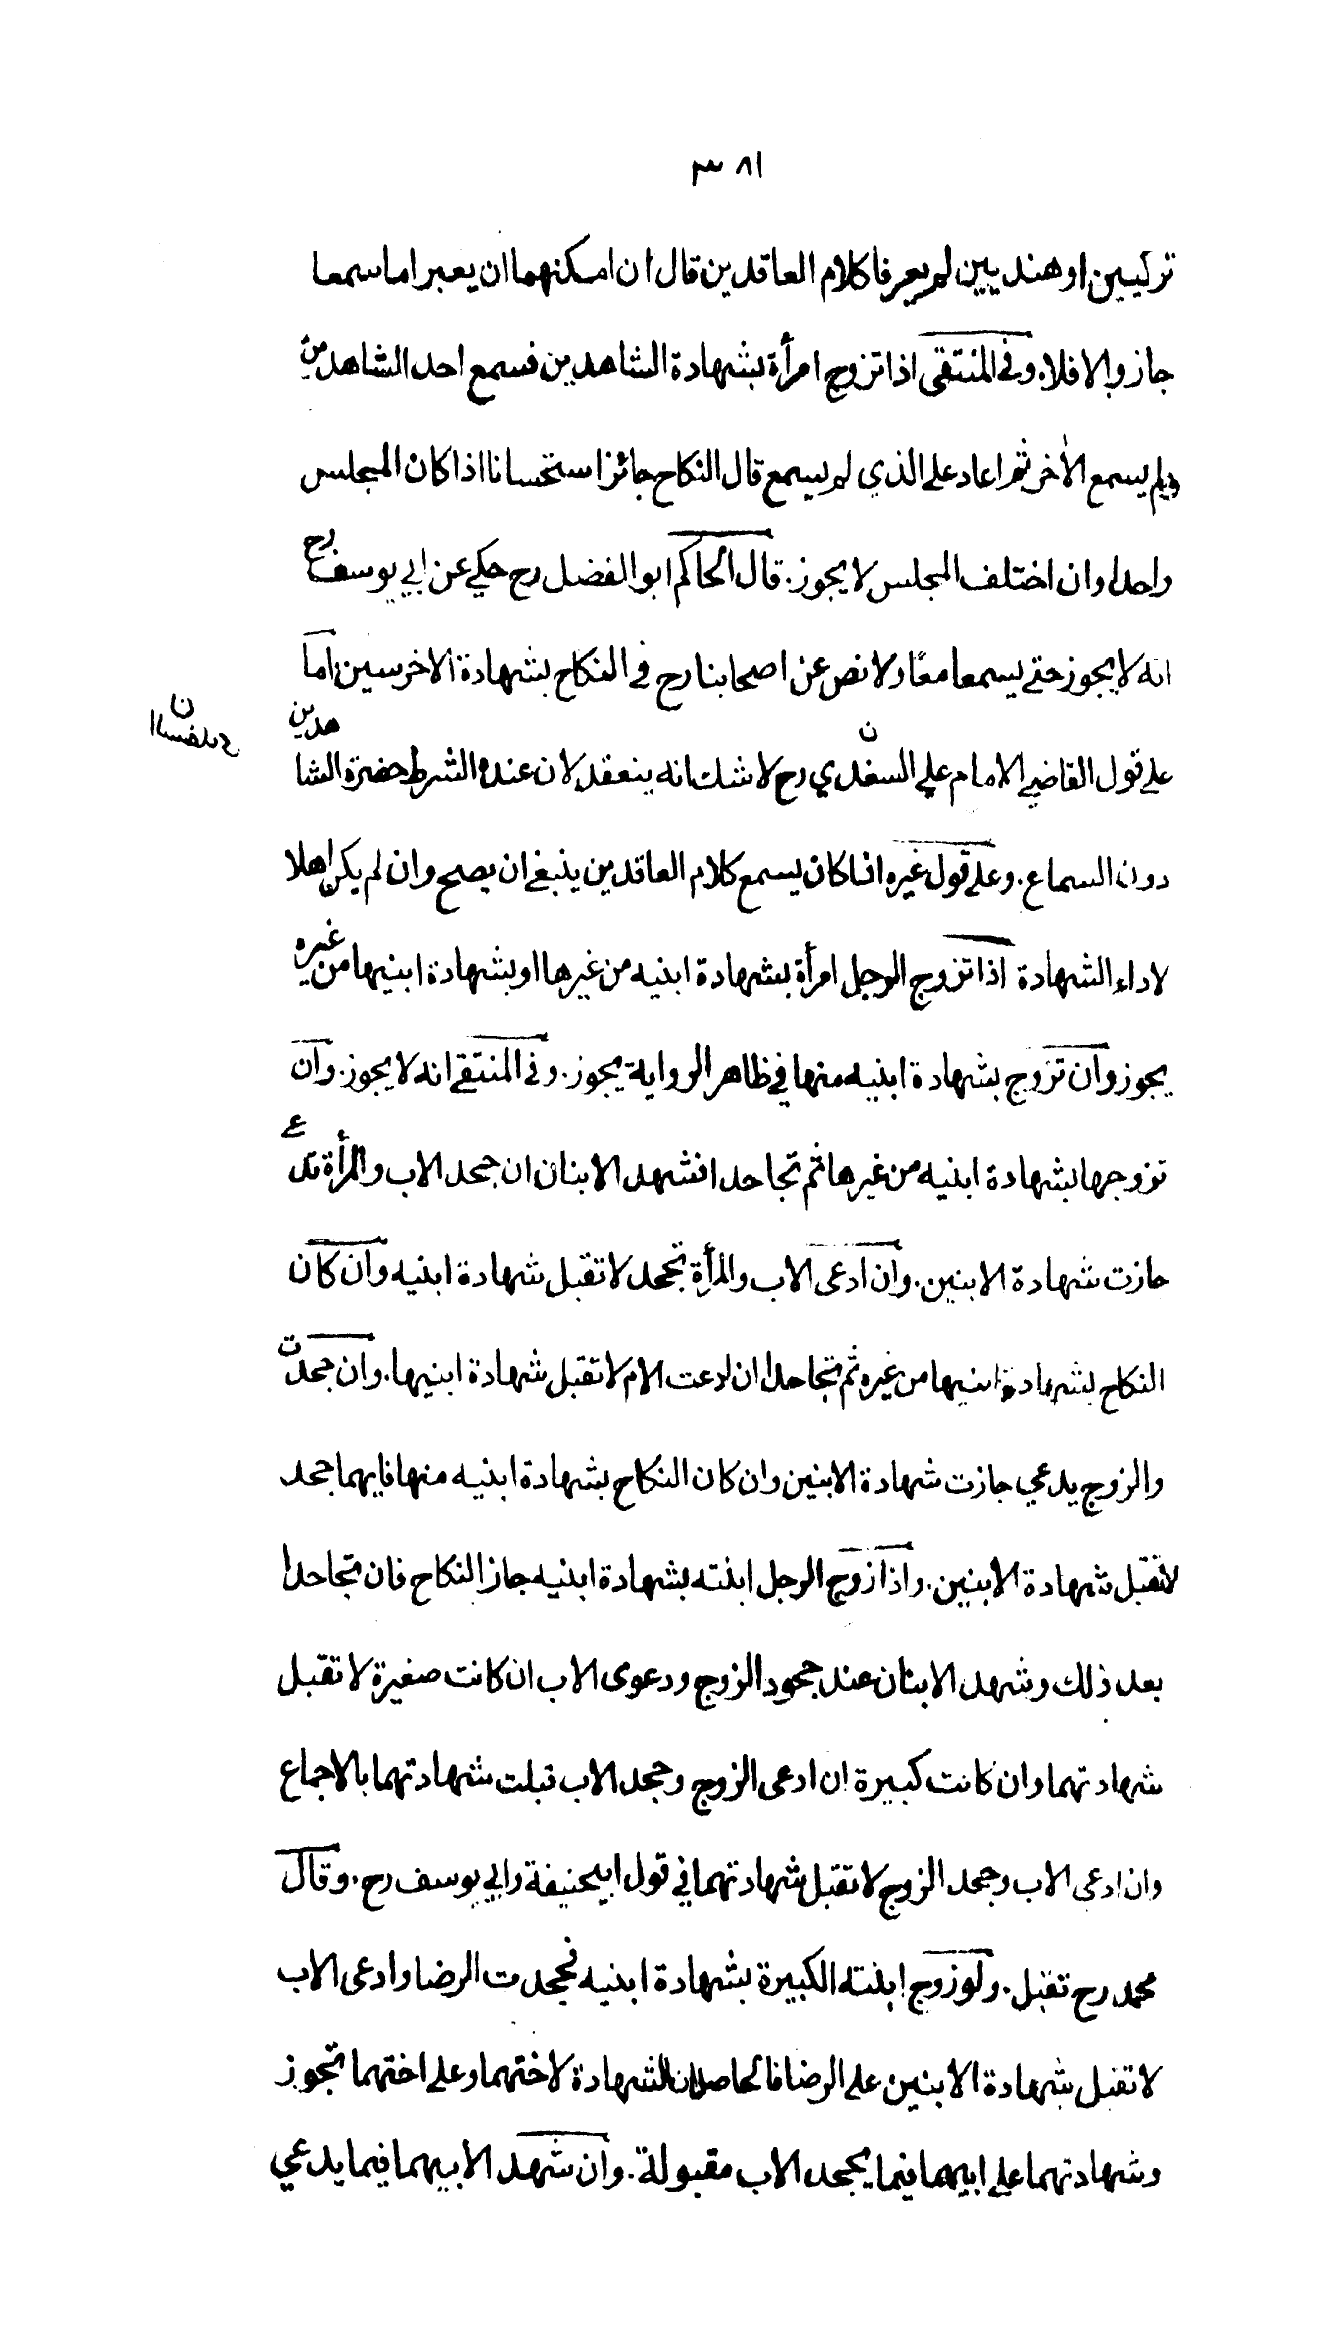 ٣٨١
تركيين او هنديين لم يعرفا كلام العاقدين قال ان امكنهما ان يعبر اما سمعا
جاز والا فلا. وفي المنتقى اذا تزوج امرأة بشهادة الشاهدين فسمع احد الشاهدين
ولم يسمع الاخر ثم اعاد على الذي لم يسمع قال النكاح جائز استحسانا اذا كان المجلس
واحدا وان اختلف المجلس لا يجوز. قال الحاكم ابو الفضل رح حكي عن ابي يوسف رح
انه لا يجوز حتى يسمعا معًا ولا نص عن اصحابنا رح في النكاح بشهادة الاخرسين اما
على قول القاضي الامام علي السغدي رح لا شك انه ينعقد لان عنده الشرط حضرة الشاهدين
دون السماع. وعلى قول غيره اذا كان يسمع كلام العاقدين ينبغي ان يصح وان لم يكن اهلا
لاداء الشهادة اذا تزوج الرجل امرأة بشهادة ابنيه من غيرها او بشهادة ابنيها من غيره
يجوز وان تزوج بشهادة ابنيه منها في ظاهر الرواية يجوز. وفي المنتقى انه لا يجوز. وان
تزوجها بشهادة ابنيه من غيرها ثم تجاحدا فشهد الابنان ان جحد الاب والمرأة تدعي
جازت شهادة الابنين. وان ادعى الاب والمرأة تجحد لا تقبل شهادة ابنيه وان كان
النكاح بشهادة ابنيها من غيره ثم تجاحدا ان ادعت الام لا تقبل شهادة ابنيها. وان جحدت
والزوج يدعي جازت شهادة الابنين وان كان النكاح بشهادة ابنيه منها فايهما جحد
لا تقبل شهادة الابنين. واذا زوج الرجل ابنته بشهادة ابنيه جاز النكاح فان تجاحدا
بعد ذلك وشهد الابنان عند جحود الزوج ودعوى الاب ان كانت صغيرة لا تقبل
شهادتهما وان كانت كبيرة ان ادعى الزوج وجحد الاب قبلت شهادتهما بالاجماع
وان ادعى الاب وجحد الزوج لا تقبل شهادتهما في قول ابيحنيفة وابي يوسف رح. وقال
محمد رح تقبل. ولو زوج ابنته الكبيرة بشهادة ابنيه فجحدت الرضا وادعى الاب
لا تقبل شهادة الابنين على الرضا فالحاصل ان الشهادة لاختهما وعلى اختهما تجوز
وشهادتهما على ابيهما فيما يجحد الاب مقبولة. وان شهد الابيهما فيما يدعي